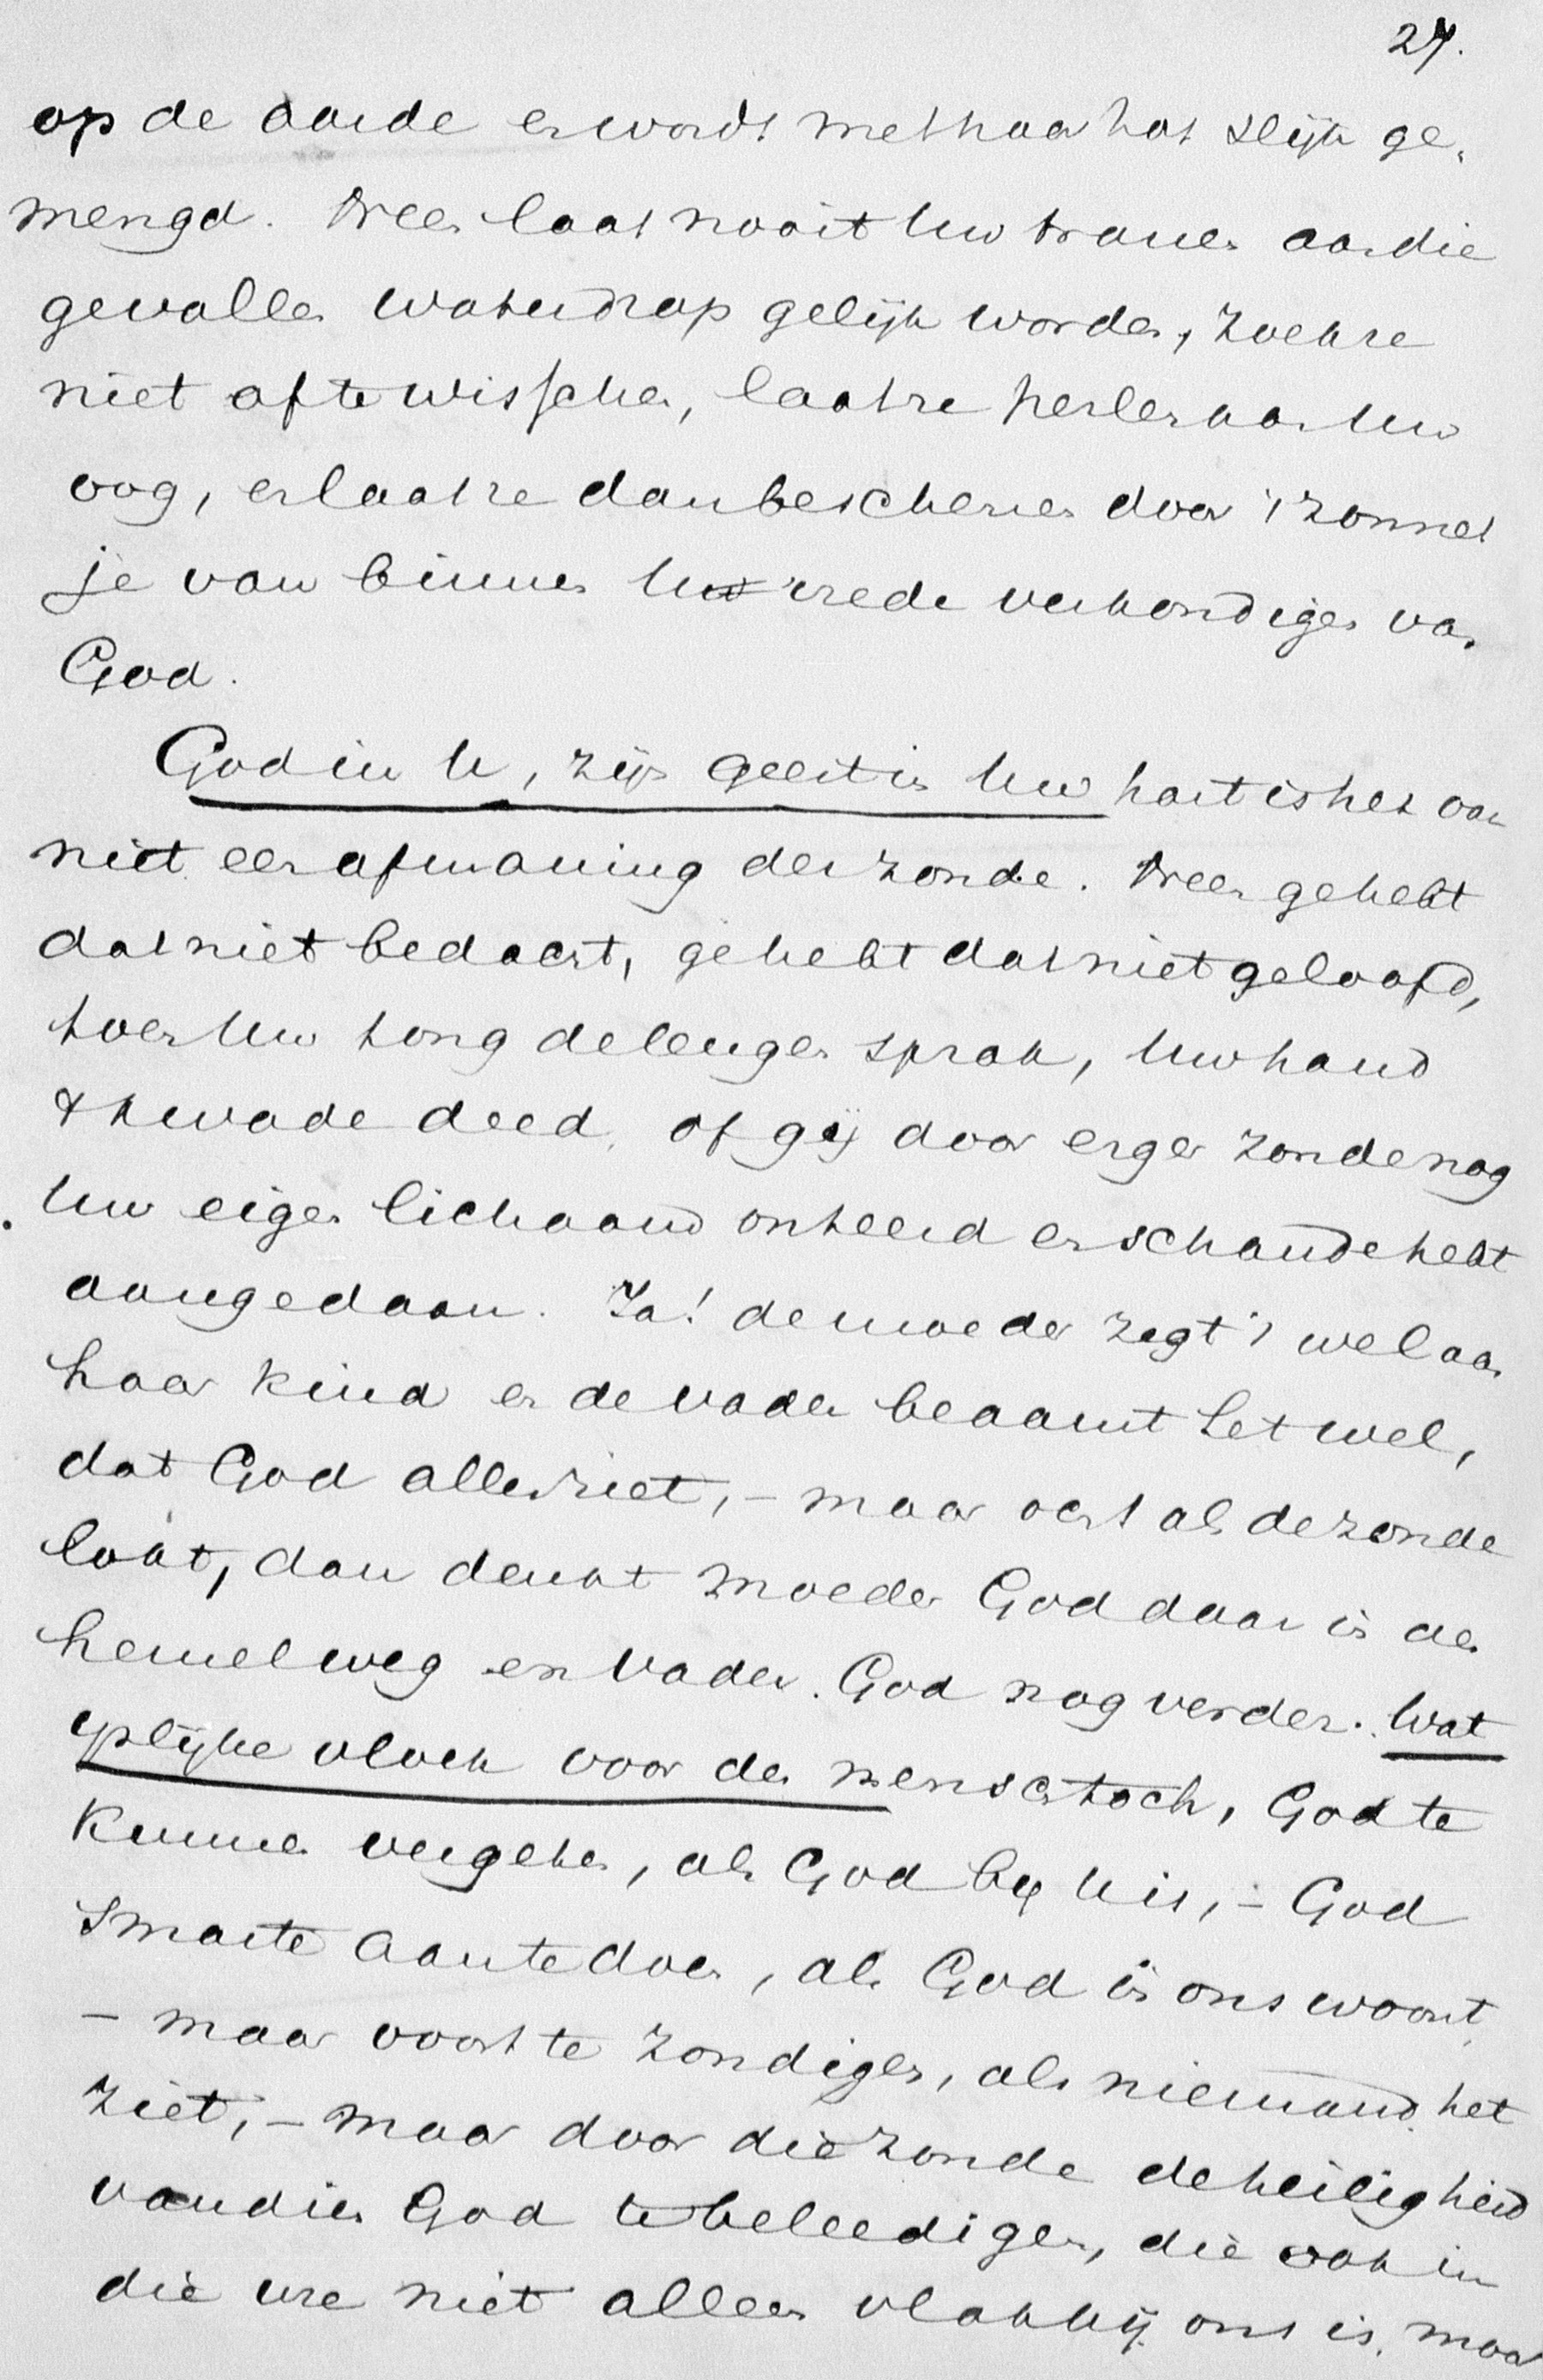 27.
op de aarde en wordt met haar tot slijk ge-
mengd. Neen laat nooit Uw tranen aan die
gevallen waterdrop gelijk worden, zoek ze
niet af te wisschen, laat ze perlen aan Uw
oog, en laat ze dan beschenen door 't zonnet
je van binnen U vrede verkondigen van
God.
God in U, zijn geest in Uw hart is het ook
niet een afmaning der zonde. Neen ge hebt
dat niet bedacht, ge hebt dat niet geloofd,
toen Uw tong de leugen sprak, Uw hand
't kwade deed, of gij door erger zonde nog
Uw eigen lichaam onteerd en schande hebt
aangedaan. Ja! de moeder zegt 't wel aan
haar kind en de vader beaamt het wel,
dat God alles ziet, – maar ach als de zonde
lokt, dan denkt moeder God daar in den
hemel weg en vader God nog verder. Wat
yslijke vloek voor den mensch toch, God te
kunnen vergeten, als God by U is, – God
smarte aan te doen, als God in ons woont,
– maar voort te zondigen, als niemand het
ziet, – maar door die zonde de heiligheid
van dien God te beleedigen, die ook in
die ure niet alleen vlak bij ons is, maar